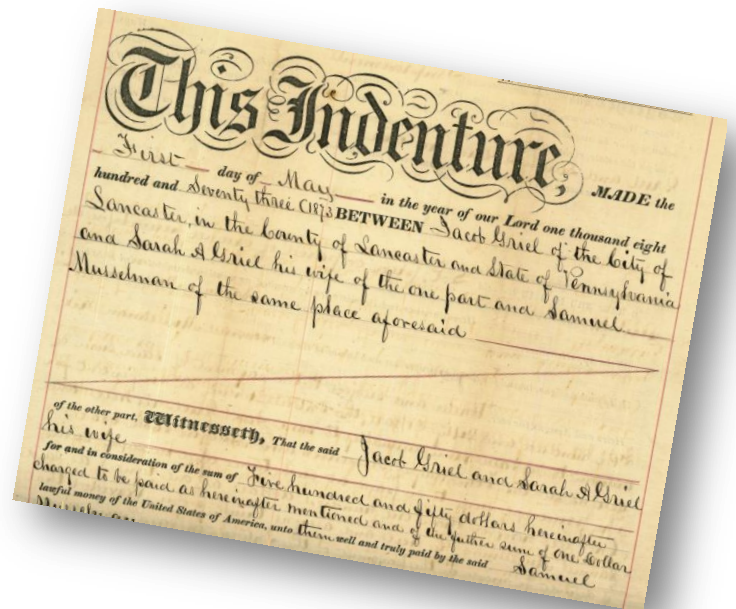 This Indenture, MADE the
First day of May in the year of our Lord one thousand eight
hundred and Seventy three (1873 BETWEEN Jacob Griel of the City of
Lancaster, in the County of Lancaster and State of Pennsylvania
and Sarah A Griel his wife of the one part and Samuel
Musselman of the same place aforesaid
of the other part, Witnesseth, That the said Jacob Griel and Sarah A Griel
his wife
for and in consideration of the sum of Five hundred and fifty dollars hereinafter
charged to be paid as hereinafter mentioned and of the further sum of one Dollar
lawful money of the United States of America, unto them well and truly paid by the said Samuel
Musselman